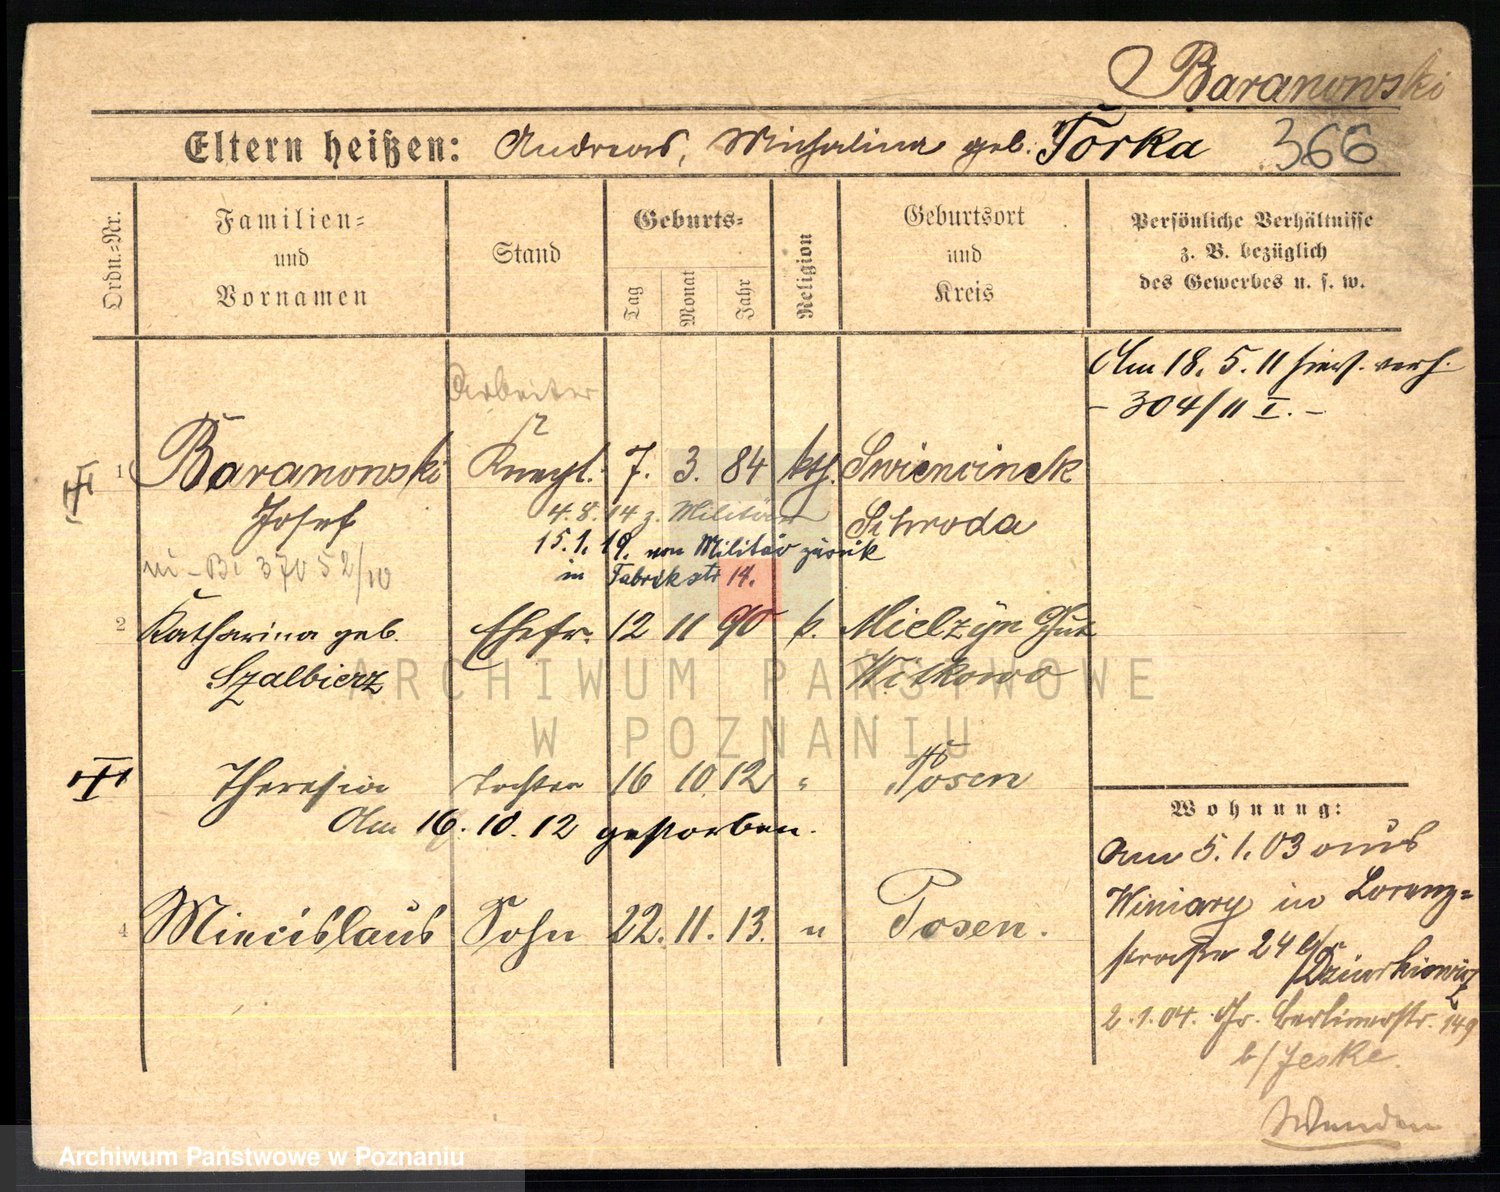 Baranowski
Eltern heißen: Andreas, Michalina geb. Torka 366
Ordn.-Nr.
Familien-
und
Vornamen
Stand
Geburts-
Tag
Monat
Jahr
Religion
Geburtsort
und
Kreis
Persönliche Verhältnisse
z. B. bezüglich
des Gewerbes u. s. w.
Am 18. 5. 11 hies. verh.
- 304/11 I. -
Arbeiter
1 Baranowski Knecht. 7. 3. 84 kth. Swiencinek
Josef
4. 8. 14 z. Militär
Schroda
15. 1. 19. von Militär zurück
in Fabrikstr 14.
37052/10
2 Katharina geb. Ehefr. 12 11 90 k. Mielzyn Gut
Szalbierz
Witkowo
Theresia Tochter 16 10 12 " Posen
Am 16. 10. 12 gestorben.
4 Miecislaus Sohn 22. 11. 13. " Posen.
Wohnung:
Am 5. 1. 03 aus
Winiary in Lorenz-
straße 24
2. 1. 04. Gr. Berlinerstr. 149
b/Jeske.
Wenden
ARCHIWUM PAŃSTWOWE
W POZNANIU
Archiwum Państwowe w Poznaniu